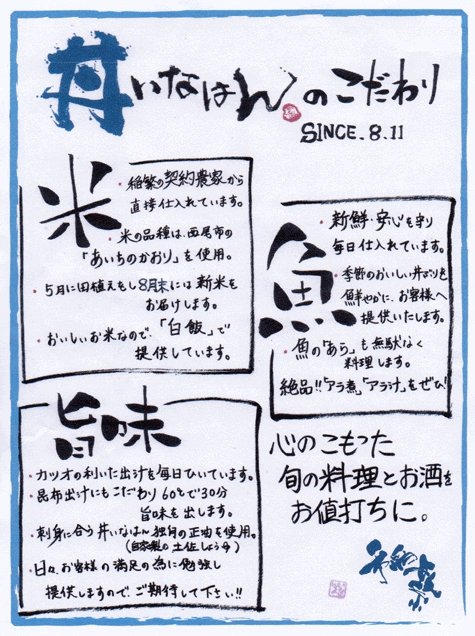 丼いなはんのこだわり
SINCE.8.11
米
・稲繁の契約農家から
直接仕入れています。
・米の品種は、西尾市の
「あいちのかおり」を使用。
・5月に田植えをし8月末には新米を
お届けします。
・おいしいお米なので、「白飯」で
提供しています。
魚
・新鮮・安心を守り
毎日仕入れています。
・季節のおいしい丼ぶりを
鮮やかに、お客様へ
提供いたします。
・魚の「あら」も無駄なく
料理します。
絶品!!「アラ煮」「アラ汁」をぜひ!
旨味
・カツオの利いた出汁を毎日ひいています。
・昆布出汁にもこだわり60℃で30分
旨味を出します。
・刺身に合う丼いなはん独自の正油を使用。
(自家製の土佐しょう油)
・日々、お客様の満足の為に勉強し
提供しますのでご期待して下さい!!
心のこもった
旬の料理とお酒を
お値打ちに。